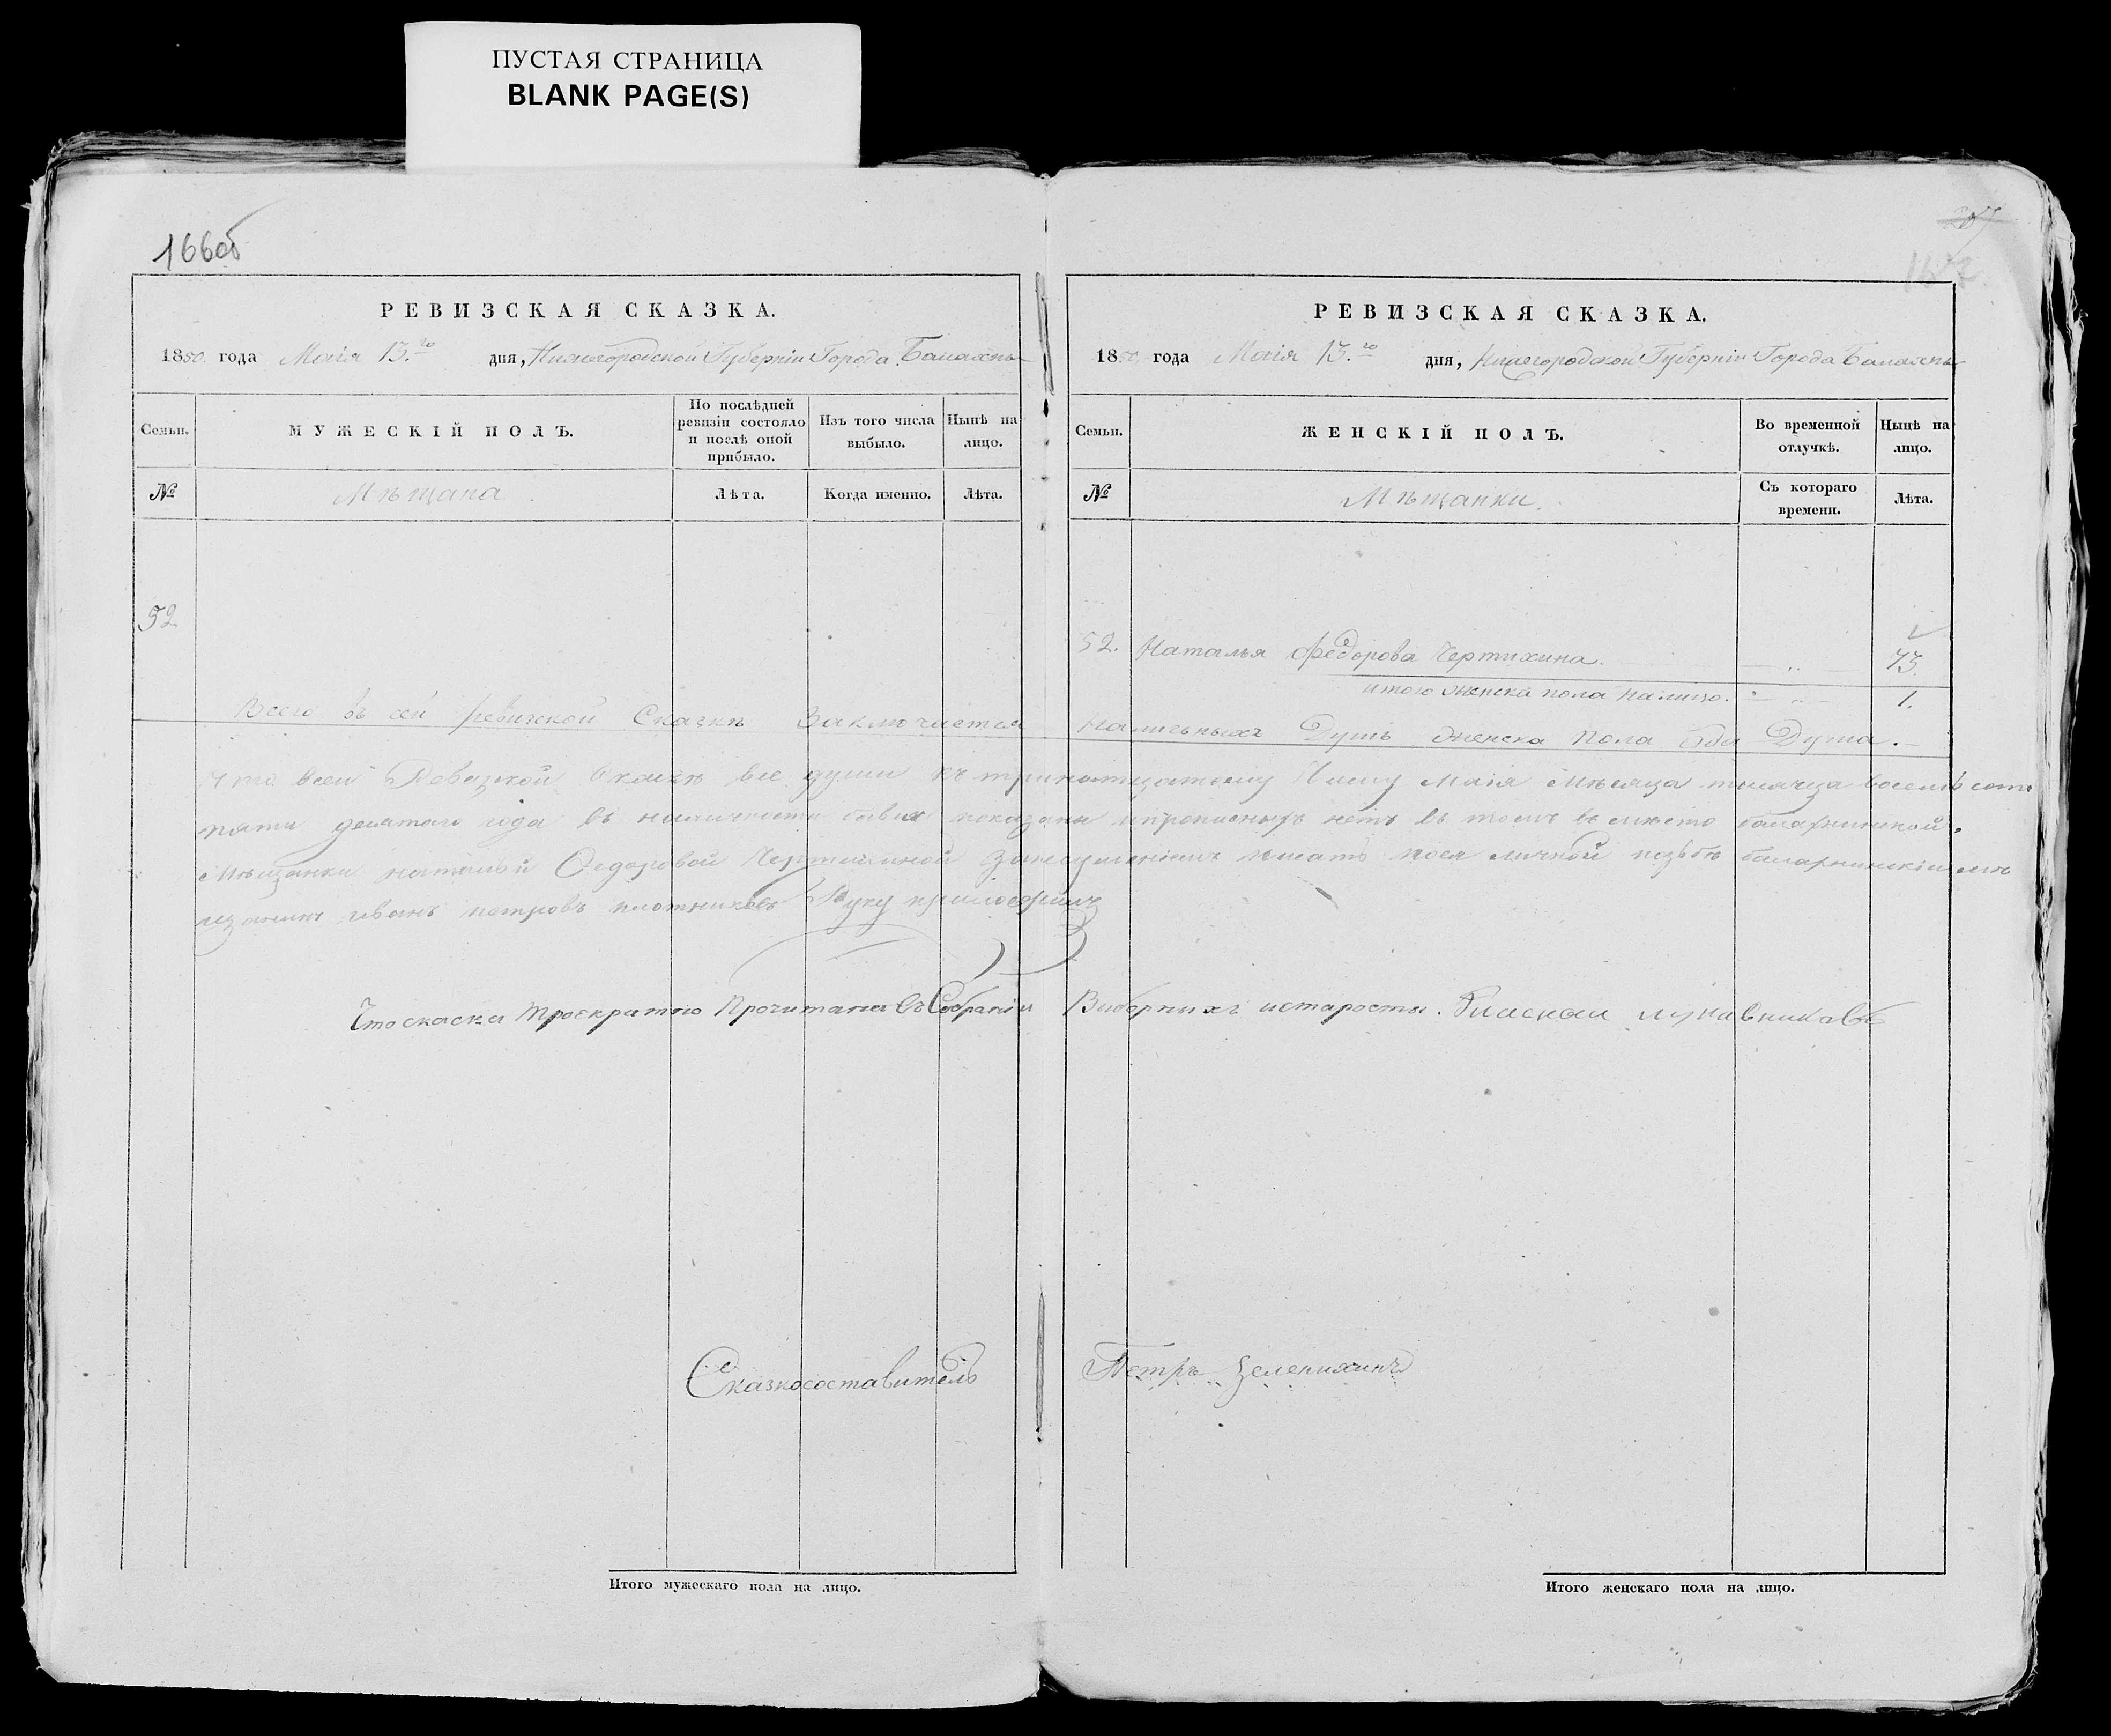 ПУСТАЯ СТРАНИЦА
BLANK PAGE(S)
166об
РЕВИЗСКАЯ СКАЗКА.
1850 года Маія 13.го дня, Нижегородской Губерніи Города Балахны
Семьи.
МУЖЕСКІЙ ПОЛЪ.
По послѣдней ревизіи состояло и послѣ оной прибыло.
Изъ того числа выбыло.
Нынѣ на лицо.
№
Мѣщана
Лѣта.
Когда именно.
Лѣта.
52
167
РЕВИЗСКАЯ СКАЗКА.
1850 года Маія 13.го дня, Нижегородской Губерніи Города Балахны
Семьи.
ЖЕНСКІЙ ПОЛЪ.
Во временной отлучкѣ.
Нынѣ на лицо.
№
Мѣщанки.
Съ котораго времени.
Лѣта.
52. Наталья Федорова Чертихина. 73.
итого женска пола налицо. 1.
Всего въ сей ревижкой Сказкѣ Заключается Наличныхъ Душъ женска пола одна Душа.
Что всей Ревизкой Скаскѣ все души къ тринатцатому Числу Маія мѣсяца тысяча восемь сотъ
пяти десятаго года въ наличности показаны и прописныхъ нетъ въ томъ въ место балахнинской
мѣщанки натальи Федоровой Чертихиной писать поея личной прозбѣ балахнинскій мѣ
щанинъ иванъ петровъ плотниковъ Руку приложилъ
Что скаска троекратно Прочитана въ Собраніи Выборныхъ истаросты.
Сказкосоставитель Петръ Зеленихинъ
Итого мужескаго пола на лицо.
Итого женскаго пола на лицо.